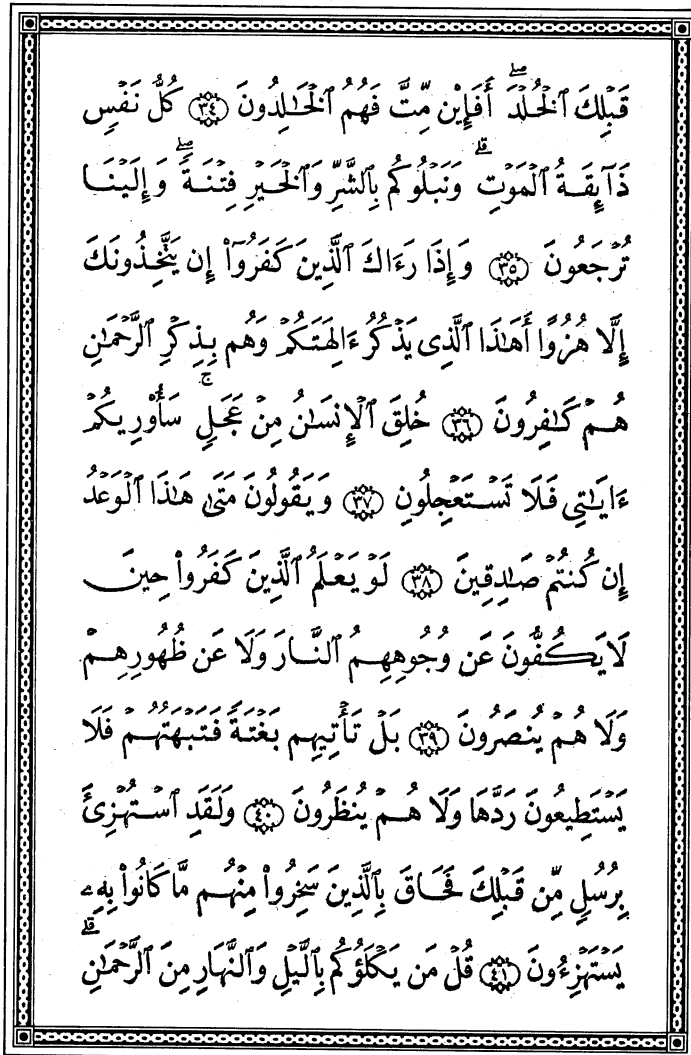 قَبۡلِكَ ٱلۡخُلۡدَۖ أَفَإِيْن مِّتَّ فَهُمُ ٱلۡخَٰلِدُونَ ۝٣٤ كُلُّ نَفۡسٖ
ذَآئِقَةُ ٱلۡمَوۡتِۗ وَنَبۡلُوكُم بِٱلشَّرِّ وَٱلۡخَيۡرِ فِتۡنَةٗۖ وَإِلَيۡنَا
تُرۡجَعُونَ ۝٣٥ وَإِذَا رَءَاكَ ٱلَّذِينَ كَفَرُوٓاْ إِن يَتَّخِذُونَكَ
إِلَّا هُزُوًا أَهَٰذَا ٱلَّذِي يَذۡكُرُ ءَالِهَتَكُمۡ وَهُم بِذِكۡرِ ٱلرَّحۡمَٰنِ
هُمۡ كَٰفِرُونَ ۝٣٦ خُلِقَ ٱلۡإِنسَٰنُ مِنۡ عَجَلٖۚ سَأُوْرِيكُمۡ
ءَايَٰتِي فَلَا تَسۡتَعۡجِلُونِ ۝٣٧ وَيَقُولُونَ مَتَىٰ هَٰذَا ٱلۡوَعۡدُ
إِن كُنتُمۡ صَٰدِقِينَ ۝٣٨ لَوۡ يَعۡلَمُ ٱلَّذِينَ كَفَرُواْ حِينَ
لَا يَكُفُّونَ عَن وُجُوهِهِمُ ٱلنَّارَ وَلَا عَن ظُهُورِهِمۡ
وَلَا هُمۡ يُنصَرُونَ ۝٣٩ بَلۡ تَأۡتِيهِم بَغۡتَةٗ فَتَبۡهَتُهُمۡ فَلَا
يَسۡتَطِيعُونَ رَدَّهَا وَلَا هُمۡ يُنظَرُونَ ۝٤٠ وَلَقَدِ ٱسۡتُهۡزِئَ
بِرُسُلٖ مِّن قَبۡلِكَ فَحَاقَ بِٱلَّذِينَ سَخِرُواْ مِنۡهُم مَّا كَانُواْ بِهِۦ
يَسۡتَهۡزِءُونَ ۝٤١ قُلۡ مَن يَكۡلَؤُكُم بِٱلَّيۡلِ وَٱلنَّهَارِ مِنَ ٱلرَّحۡمَٰنِۚ